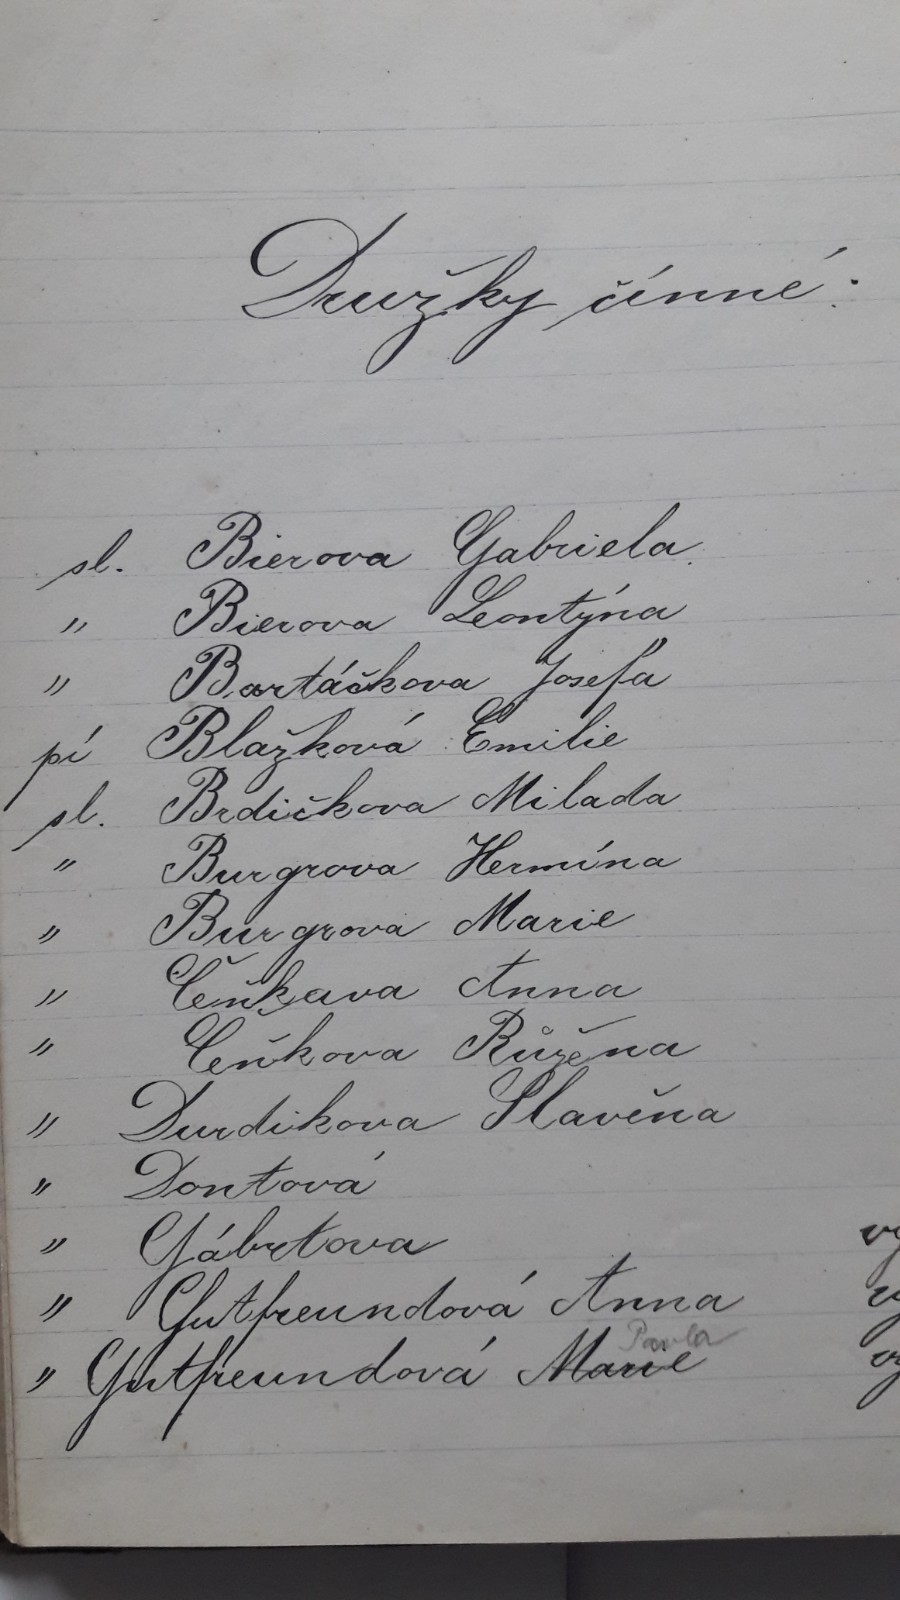 Družky činné:
sl. Bierova Gabriela.
" Bierova Leontýna
" Bartáčkova Josefa
pí Blažková Emilie
sl. Brdičkova Milada
" Burgrova Hermína
" Burgrova Marie
" Čeňkava Anna
" Čeňkova Růžena
" Durdikova Slavěna
" Dontová
" Gábrtova
" Gutfreundová Anna
Pavla
" Gutfreundová Marie